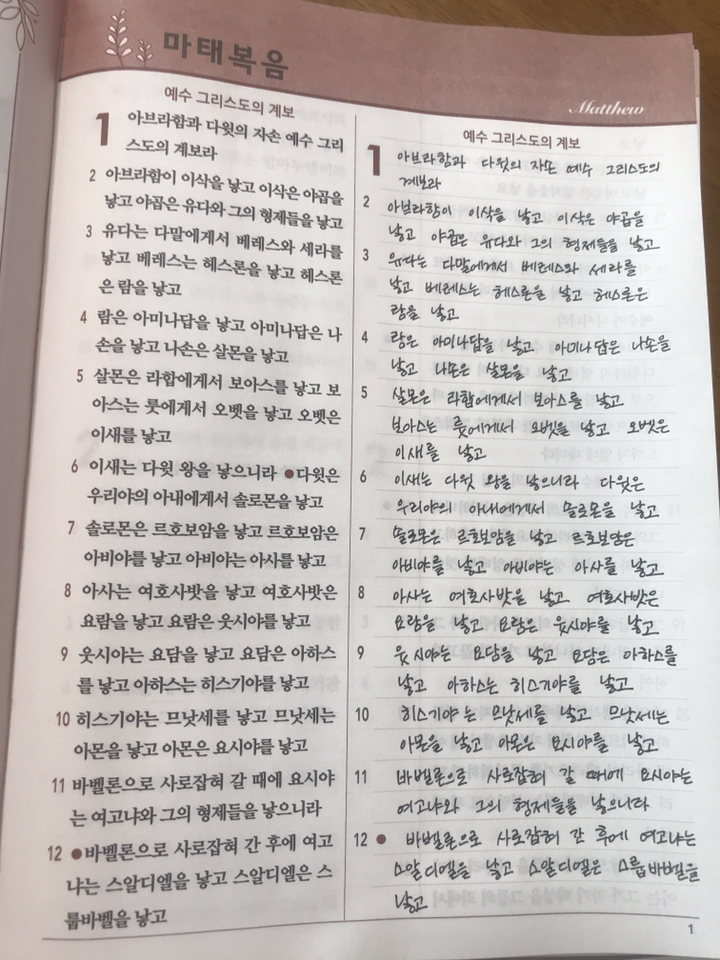 마태복음
Matthew
예수 그리스도의 계보
1 아브라함과 다윗의 자손 예수 그리
스도의 계보라
2 아브라함이 이삭을 낳고 이삭은 야곱을
낳고 야곱은 유다와 그의 형제들을 낳고
3 유다는 다말에게서 베레스와 세라를
낳고 베레스는 헤스론을 낳고 헤스론
은 람을 낳고
4 람은 아미나답을 낳고 아미나답은 나
손을 낳고 나손은 살몬을 낳고
5 살몬은 라합에게서 보아스를 낳고 보
아스는 룻에게서 오벳을 낳고 오벳은
이새를 낳고
6 이새는 다윗 왕을 낳으니라 ●다윗은
우리야의 아내에게서 솔로몬을 낳고
7 솔로몬은 르호보암을 낳고 르호보암은
아비야를 낳고 아비야는 아사를 낳고
8 아사는 여호사밧을 낳고 여호사밧은
요람을 낳고 요람은 웃시야를 낳고
9 웃시야는 요담을 낳고 요담은 아하스
를 낳고 아하스는 히스기야를 낳고
10 히스기야는 므낫세를 낳고 므낫세는
아몬을 낳고 아몬은 요시야를 낳고
11 바벨론으로 사로잡혀 갈 때에 요시야
는 여고냐와 그의 형제들을 낳으니라
12 ●바벨론으로 사로잡혀 간 후에 여고
냐는 스알디엘을 낳고 스알디엘은 스
룹바벨을 낳고
예수 그리스도의 계보
1 아브라함과 다윗의 자손 예수 그리스도의
계보라
2 아브라함이 이삭을 낳고 이삭은 야곱을
낳고 야곱은 유다와 그의 형제들을 낳고
3 유다는 다말에게서 베레스와 세라를
낳고 베레스는 헤스론을 낳고 헤스론은
람을 낳고
4 람은 아미나답을 낳고 아미나답은 나손을
낳고 나손은 살몬을 낳고
5 살몬은 라합에게서 보아스를 낳고
보아스는 룻에게서 오벳을 낳고 오벳은
이새를 낳고
6 이새는 다윗 왕을 낳으니라 다윗은
우리야의 아내에게서 솔로몬을 낳고
7 솔로몬은 르호보암을 낳고 르호보암은
아비야를 낳고 아비야는 아사를 낳고
8 아사는 여호사밧을 낳고 여호사밧은
요람을 낳고 요람은 웃시야를 낳고
9 웃시야는 요담을 낳고 요담은 아하스를
낳고 아하스는 히스기야를 낳고
10 히스기야는 므낫세를 낳고 므낫세는
아몬을 낳고 아몬은 요시야를 낳고
11 바벨론으로 사로잡혀 갈 때에 요시야는
여고냐와 그의 형제들을 낳으니라
12 ● 바벨론으로 사로잡혀 간 후에 여고냐는
스알디엘을 낳고 스알디엘은 스룹바벨을
낳고
1